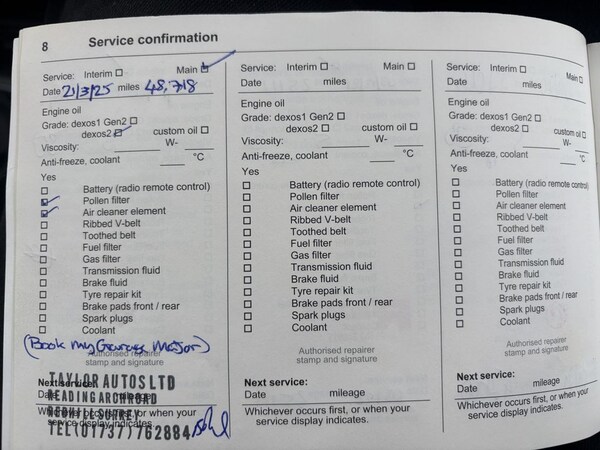 8 Service confirmation
Service: Interim ☐ Main ☑
Date 21/3/25 miles 48,718
Engine oil
Grade: dexos1 Gen2 ☐
dexos2 ☑ custom oil ☐
Viscosity: ____ W- ____
Anti-freeze, coolant ____ °C
Yes
☐ Battery (radio remote control)
☑ Pollen filter
☑ Air cleaner element
☐ Ribbed V-belt
☐ Toothed belt
☐ Fuel filter
☐ Gas filter
☐ Transmission fluid
☐ Brake fluid
☐ Tyre repair kit
☐ Brake pads front / rear
☐ Spark plugs
☐ Coolant
(Book My Garage Major)
Authorised repairer
stamp and signature
Next service:
Date mileage
Whichever occurs first, or when your
service display indicates.
TAYLOR AUTOS LTD
READING ARCH ROAD
REDHILL SURREY
TEL (01737) 762884
Service: Interim ☐ Main ☐
Date miles
Engine oil
Grade: dexos1 Gen2 ☐
dexos2 ☐ custom oil ☐
Viscosity: ____ W- ____
Anti-freeze, coolant ____ °C
Yes
☐ Battery (radio remote control)
☐ Pollen filter
☐ Air cleaner element
☐ Ribbed V-belt
☐ Toothed belt
☐ Fuel filter
☐ Gas filter
☐ Transmission fluid
☐ Brake fluid
☐ Tyre repair kit
☐ Brake pads front / rear
☐ Spark plugs
☐ Coolant
Authorised repairer
stamp and signature
Next service:
Date mileage
Whichever occurs first, or when your
service display indicates.
Service: Interim ☐ Main ☐
Date miles
Engine oil
Grade: dexos1 Gen2 ☐
dexos2 ☐ custom oil ☐
Viscosity: ____ W- ____
Anti-freeze, coolant ____ °C
Yes
☐ Battery (radio remote control)
☐ Pollen filter
☐ Air cleaner element
☐ Ribbed V-belt
☐ Toothed belt
☐ Fuel filter
☐ Gas filter
☐ Transmission fluid
☐ Brake fluid
☐ Tyre repair kit
☐ Brake pads front / rear
☐ Spark plugs
☐ Coolant
Authorised repairer
stamp and signature
Next service:
Date mileage
Whichever occurs first, or when your
service display indicates.